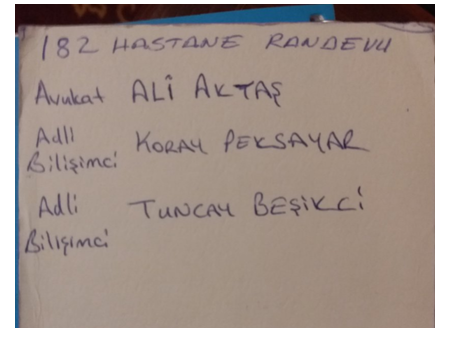 182 HASTANE RANDEVU
Avukat ALİ AKTAŞ
Adli Bilişimci KORAY PEKSAYAR
Adli Bilişimci TUNCAY BEŞİKCİ